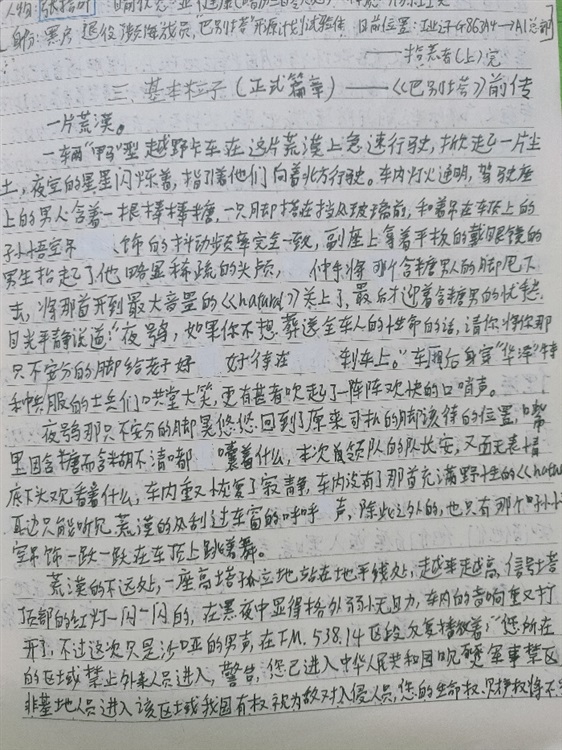 人物:张指 目前状态:
[身份:黑户 退役 员,“巴别塔”开源计划试验体 目前位置:工业子486314→A1总部]
——指患者(上)完
三、基本粒子(正式篇章)——《巴别塔》前传
一片荒漠。
一辆“甲子”型越野卡车在这片荒漠上急速行驶,掀起了一片尘
土,夜空的星星闪烁着,指引着他们向着北方行驶。车内灯火通明,驾驶座
上的男人含着一根棒棒糖,一只脚搭在挡风玻璃前,和着吊在车顶上的
孙悟空吊 饰的抖动频率完全一致,副座上拿着平板的戴眼镜的
男生抬起了他略显稀疏的头颅, 伸手将那个含糖男人的脚甩下
去,将那首开到最大音量的《natural》关上了,最后才迎着含糖男的忧愁
目光平静说道:“夜鸮,如果你不想葬送全车人的性命的话,请你将你那
只不安分的脚给老子好 好待在 刹车上。”车厢后身穿“华泽”特
种兵服的士兵们哄堂大笑,更有甚者吹起了一阵阵欢快的口哨声。
夜鸮那只不安分的脚晃悠悠回到了原来可私的脚该待的位置,嘴
里因含糖而含糊不清嘟 囔着什么,本次负领队的队长安,又面无表情
底下头观看着什么,车内重又恢复了寂静,车内没有了那首充满野性的《natu
耳边只能听见荒漠的风刮过车窗的呼呼 声,除此之外的,也只有那个孙悟
空吊饰一跃一跃在车顶上跳着舞。
荒漠的不远处,一座高塔孤立地站在地平线处,越来越高,信号塔
顶部的红灯一闪一闪的,在黑夜中显得格外弱小无力,车内的音响重又打
开了,不过这次只是沙哑的男声,在FM.538.14区段反复播放着:“您所在
的区域禁止外来人员进入,警告,您已进入中华人民共和国 军事禁区
非基地人员进入该区域我国有权视为敌对入侵人员,您的生命权.只护权将不